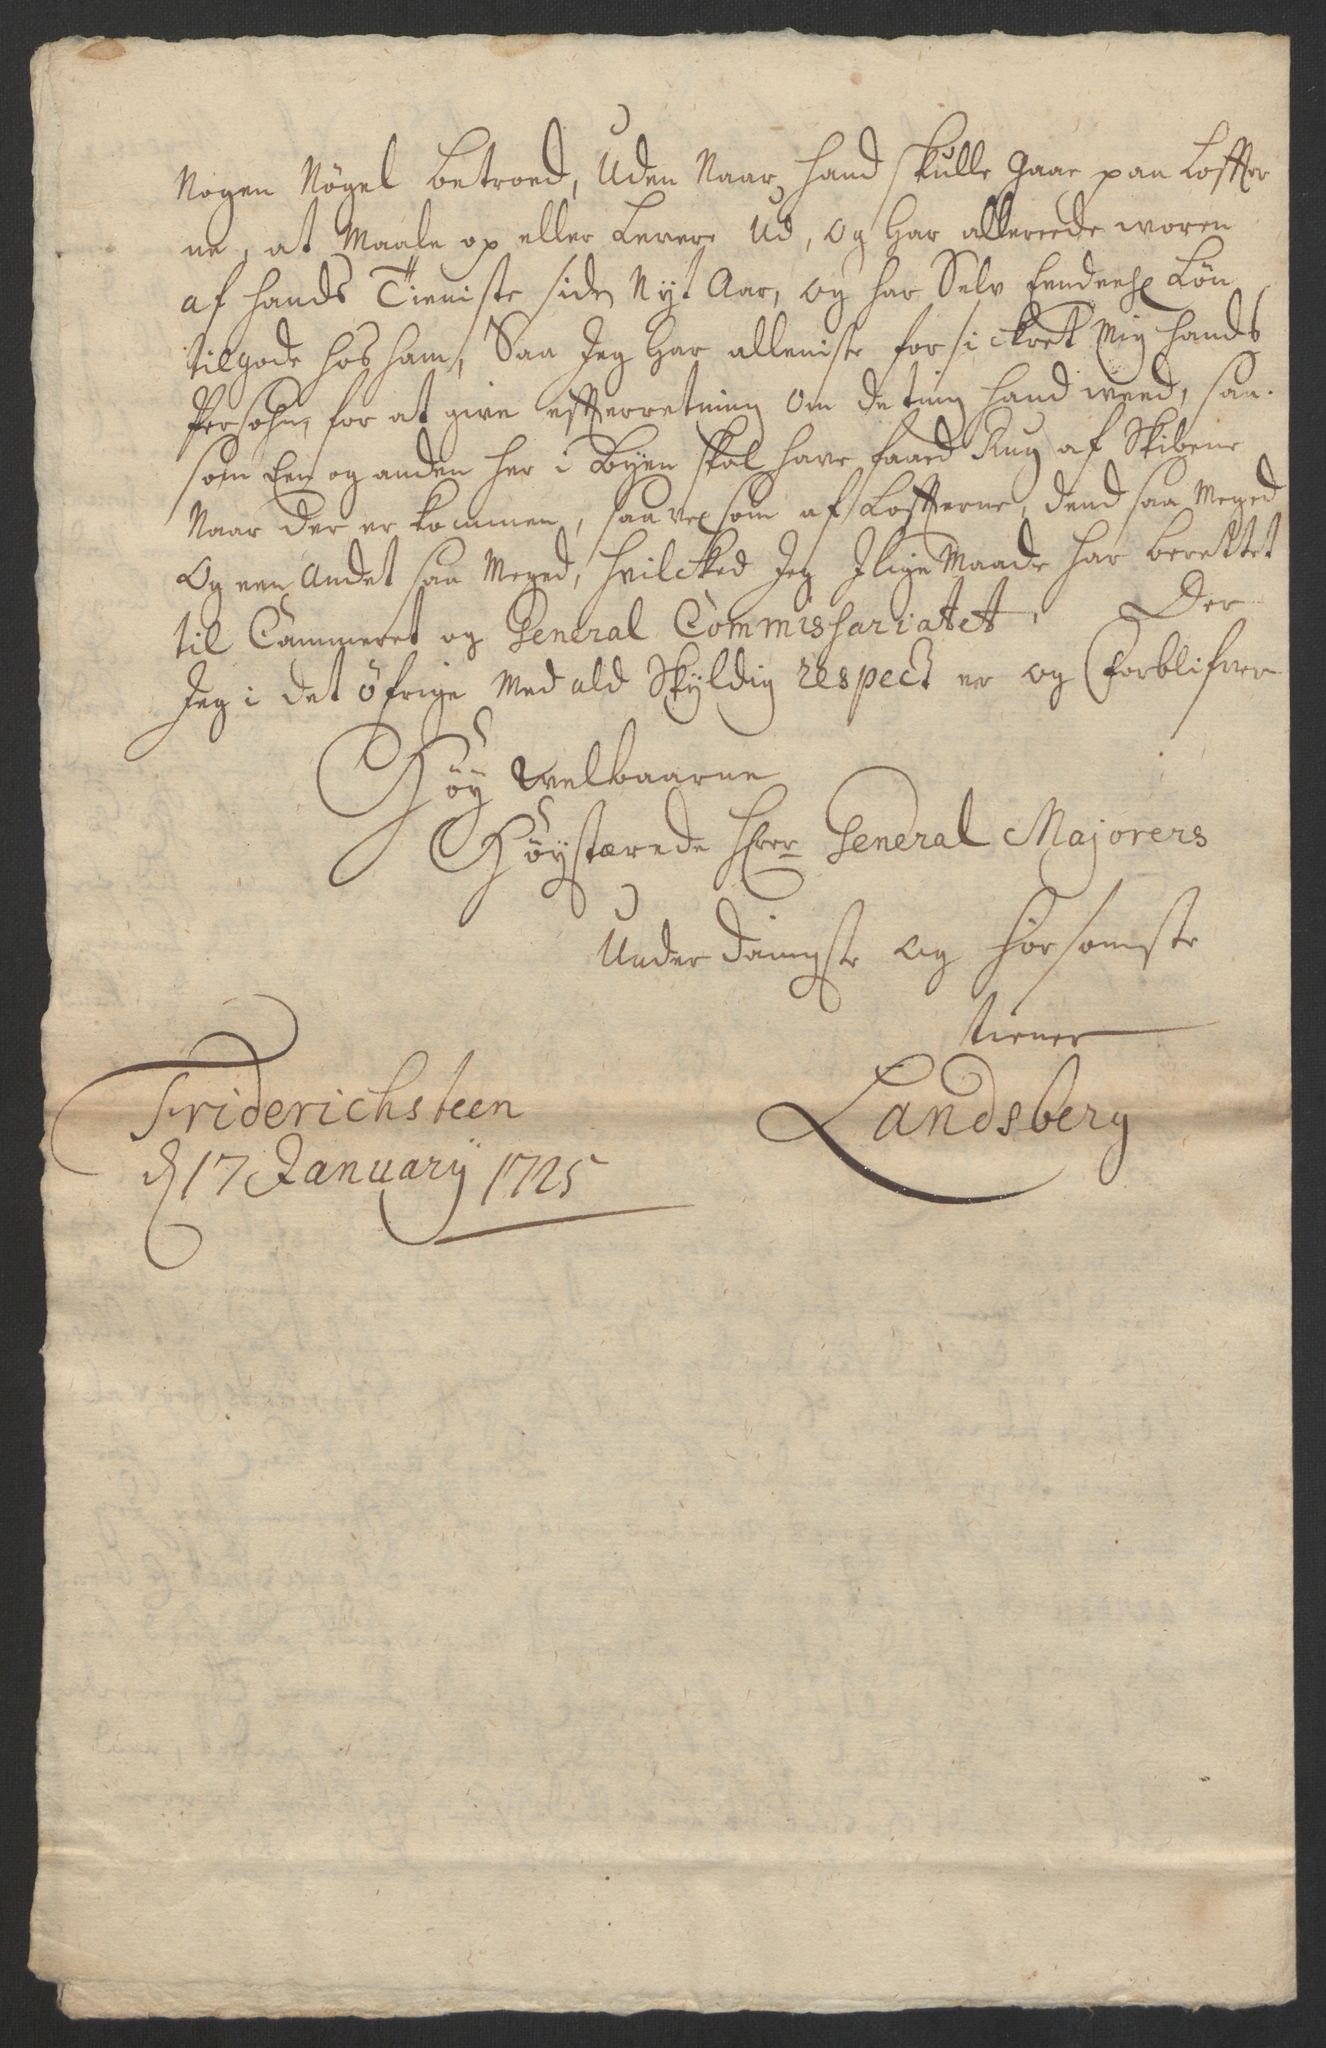 Nogen Nögel betroed, Uden Naar hand skulle gaae paa Loffter
ne, at Maale op eller Levere Ud, og har allereede woren
af hands Tieniste siden Nyt Aar, og har Selv Eendeehl Lön
tilgode hos ham, Saa Jeg har alleniste forsickret Mig hands
Persohn, for at give effterretning om de ting hand weed, saa
som Een og anden her i Byen skal have faaed Rug af Skibene
Naar der er kommen, saavel som af Loffterne, dend saa Meged
og een Andet saa Meged, hvilcked Jeg Jlige Maade har berettet
til Cammeret og General Commissariatet, Der
Jeg i det öfrige med ald Skyldig respect er og forblifver
Höy welbaarne
Höystærede Herr General Majorers
Underdanigste og hörsomste
tiener
Landsberg
Friderichsteen
d 17 January 1725